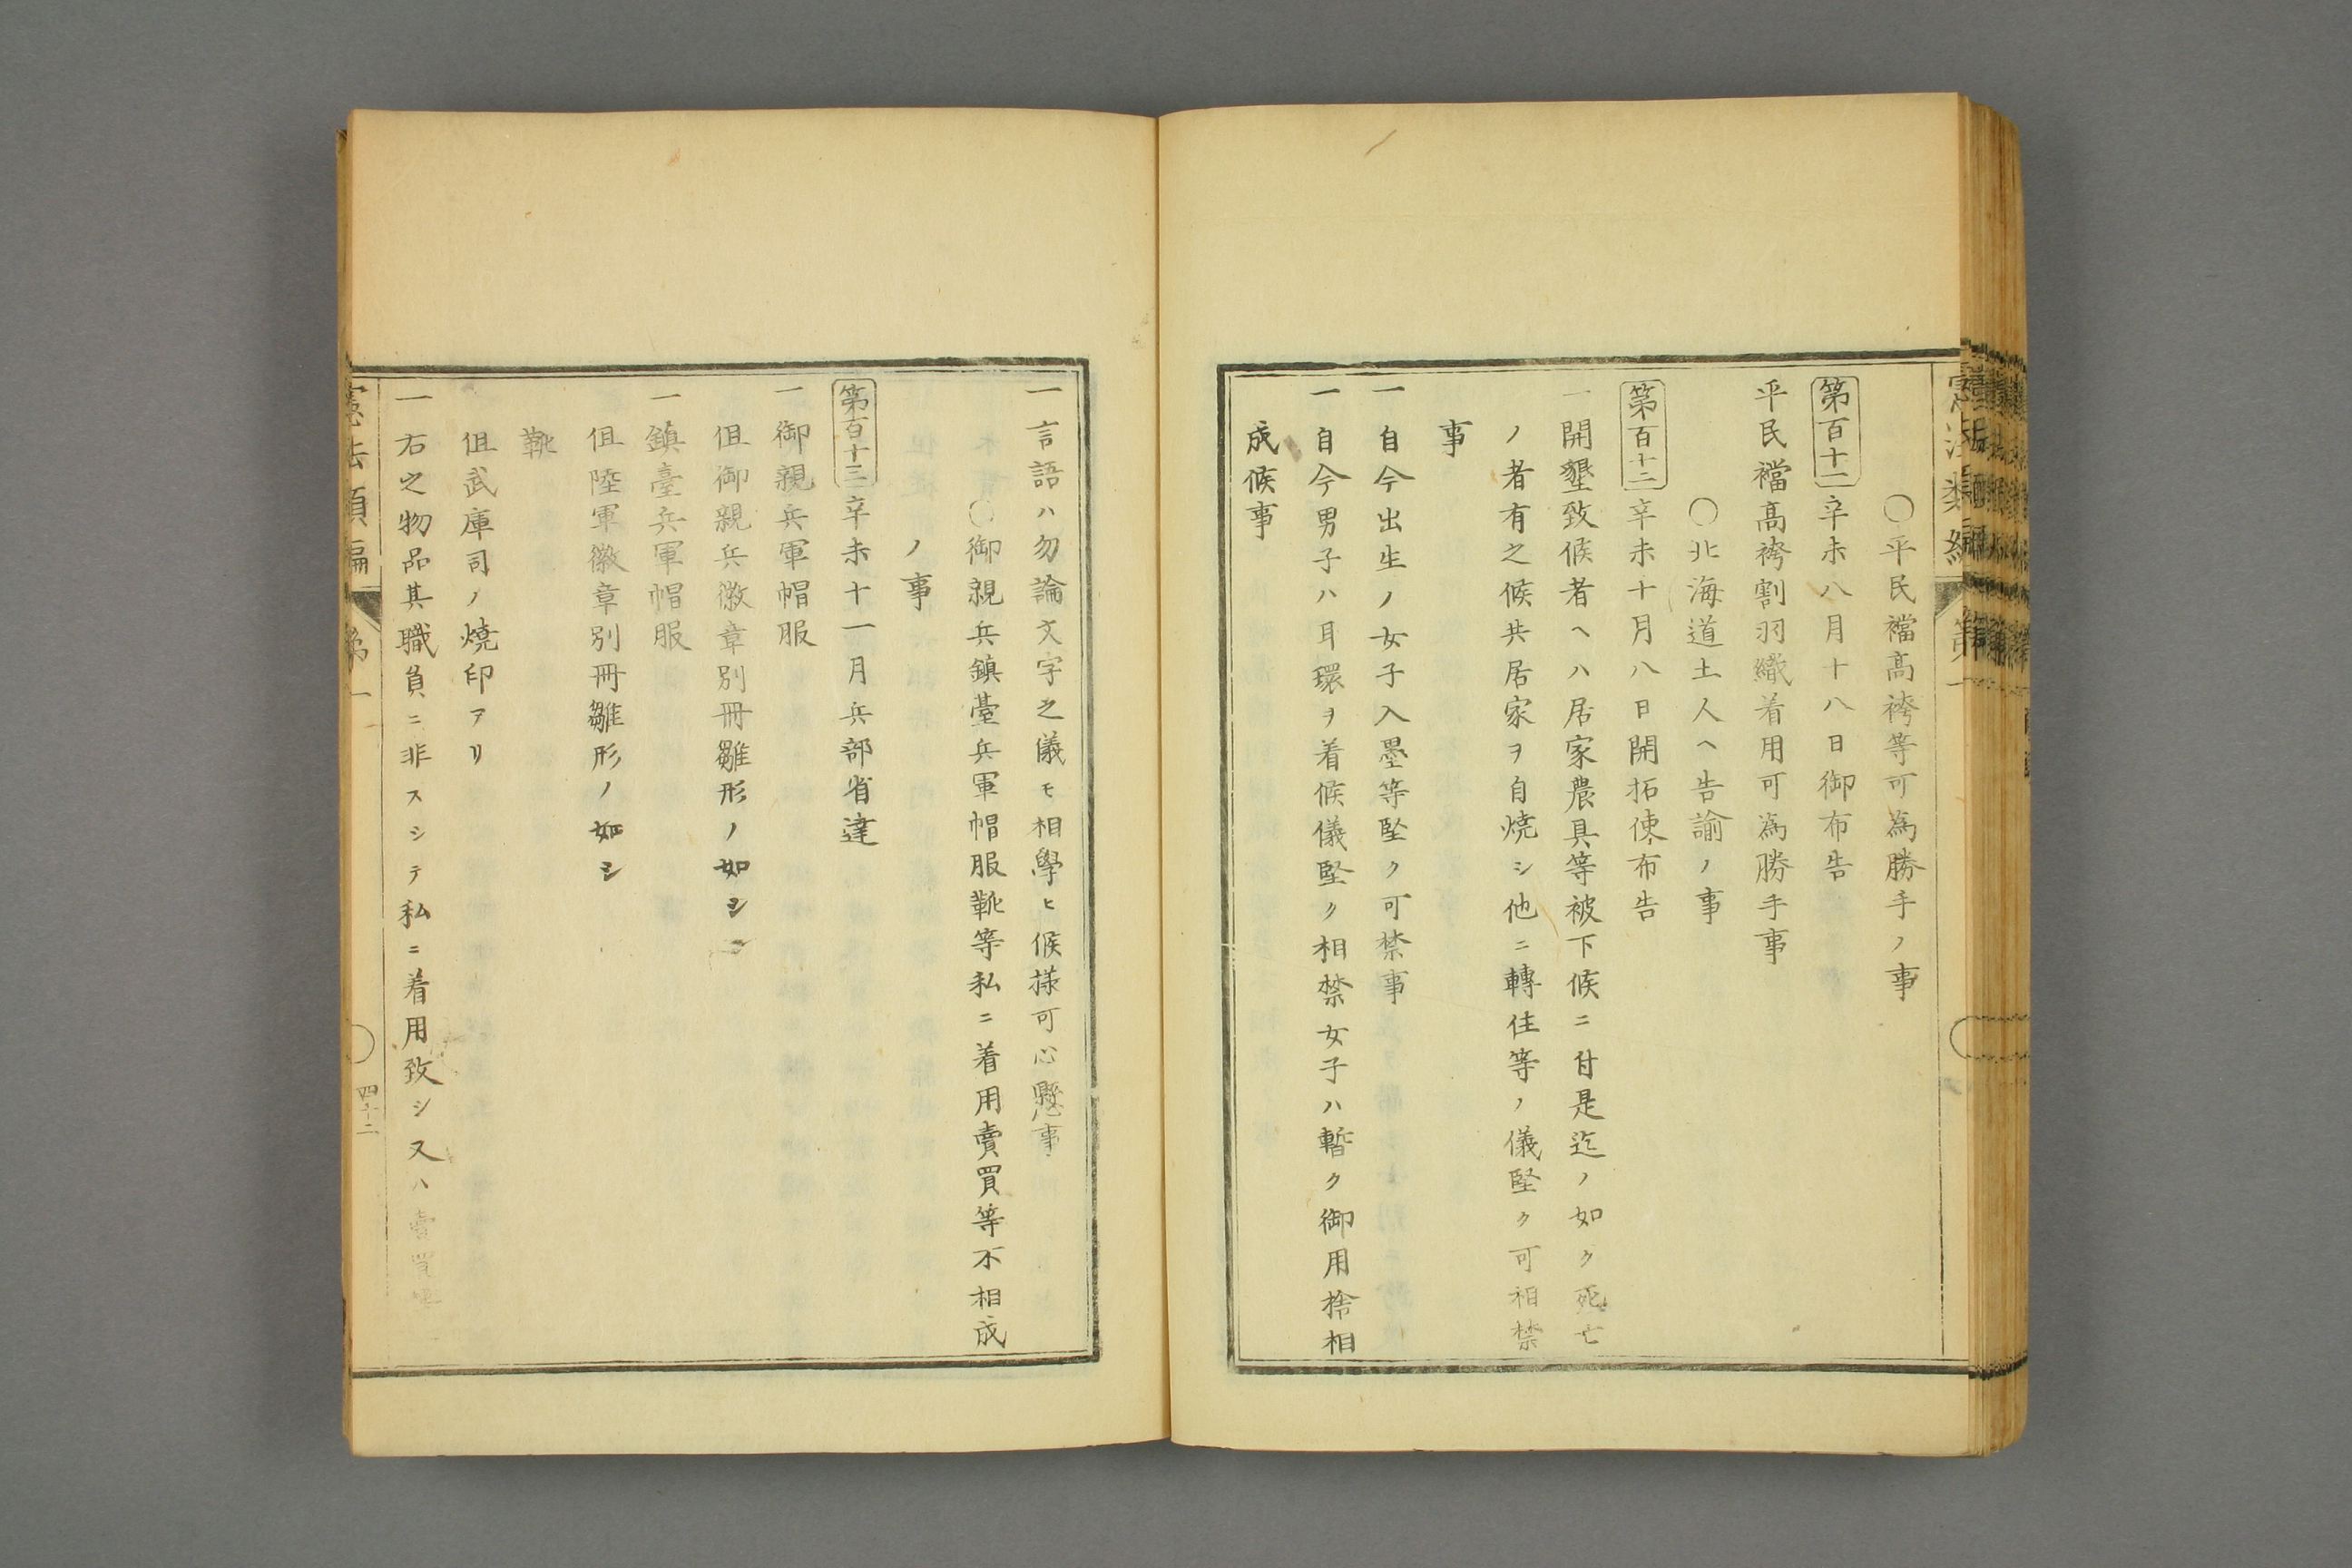 ○平民襠高袴等可為勝手ノ事
第百十一辛未八月十八日御布告
平民襠高袴割羽織着用可為勝手事
○北海道土人ヘ告諭ノ事
第百十二辛未十月八日開拓使布告
一開墾致候者ヘハ居家農具等被下候ニ付是迄ノ如ク死亡
ノ者有之候共居家ヲ自焼シ他ニ轉住等ノ儀堅ク可相禁
事
一自今出生ノ女子入墨等堅ク可禁事
一自今男子ハ耳環ヲ着候儀堅ク相禁女子ハ暫ク御用捨相
成候事
一言語ハ勿論文字之儀モ相學ヒ候様可心懸事
○御親兵鎮臺兵軍帽服靴等私ニ着用賣買等不相成
ノ事
第百十三辛未十一月兵部省達
一御親兵軍帽服
但御親兵徽章別冊雛形ノ如シ
一鎮臺兵軍帽服
但陸軍徽章別冊雛形ノ如シ
靴
但武庫司ノ焼印アリ
一右之物品其職負ニ非スシテ私ニ着用致シ又ハ賣買
憲法類編 第一 四十二